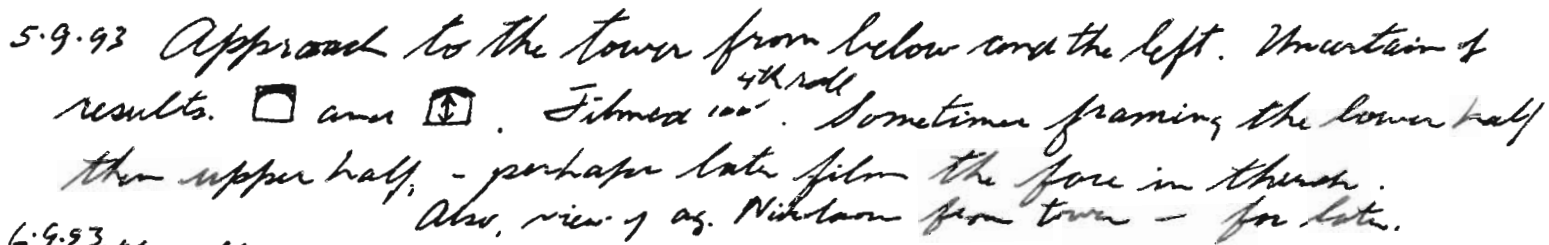 5.9.93 Approach to the tower from below and the left. Uncertain of
4th roll
results. and . Filmed 100'. Sometimes framing the lower half
then upper half, - perhaps later film the face in
Also, view of ag. Nikolaou from tower - for later.
6.9.93